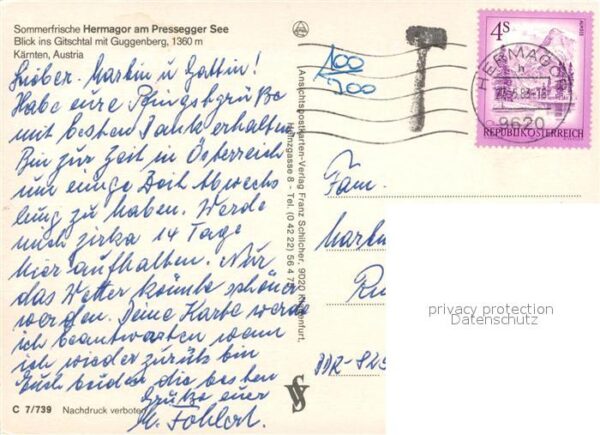 Sommerfrische Hermagor am Pressegger See
Blick ins Gitschtal mit Guggenberg, 1360 m
Kärnten, Austria
Lieber Martin u Gattin!
Habe eure Pfingstgrüße
mit besten Dank erhalten
Bin zur Zeit in Österreich
um einige Zeit Abwechs
lung zu haben. Werde
mich zirka 14 Tage
hier aufhalten. Nur
das Wetter könnte schöner
werden. Deine Karte werde
ich beantworten wenn
ich wieder zurück bin
Euch beiden die besten
Grüße euer
C 7/739 Nachdruck verboten
Ansichtspostkarten-Verlag Franz Schilcher, 9020 Klagenfurt,
Heinzgasse 8 - Tel. (0 42 22) 56 4 7
100
4S
REPUBLIK ÖSTERREICH
HERMAGOR
9620
Fam.
DDR-
privacy protection
Datenschutz